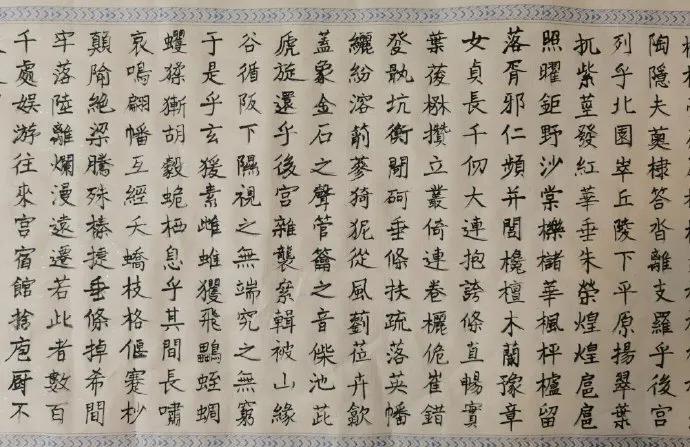 陶隱夫薁棣答沓離支羅乎後宮
列乎北園崒丘陵下平原揚翠葉
扤紫莖發紅華垂朱榮煌煌扈扈
照曜鉅野沙棠櫟櫧華楓枰櫨留
落胥邪仁頻并閭欃檀木蘭豫章
女貞長千仞大連抱誇條直暢實
葉葰楙攢立叢倚連卷欐佹崔錯
癹骫坑衡閜砢垂條扶疏落英幡
纚紛溶萷蔘猗狔從風藰莅卉歙
蓋象金石之聲管籥之音偨池茈
虒旋還乎後宮雜襲絫輯被山緣
谷循阪下隰視之無端究之無窮
于是乎玄猨素雌蜼玃飛鸓蛭蜩
蠼猱獑胡豰蛫栖息乎其間長嘯
哀鳴翩幡互經夭蟜枝格偃蹇杪
顛隃絕梁騰殊榛捷垂條掉希間
牢落陸離爛漫遠遷若此者數百
千處娛游往來宮宿館捨庖厨不